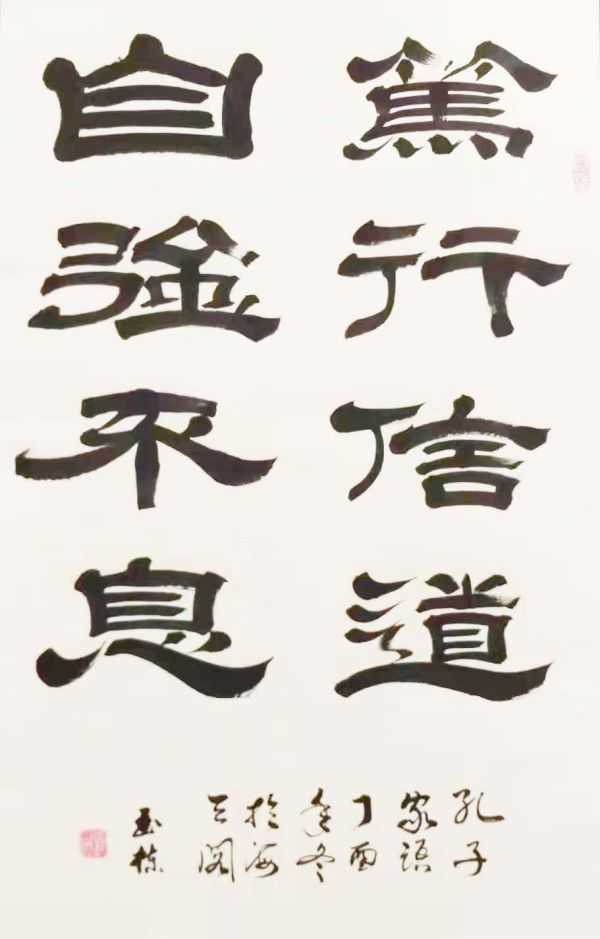 篤行信道
自強不息
孔子
家語
丁酉
年冬
於海
天閣
玉棟